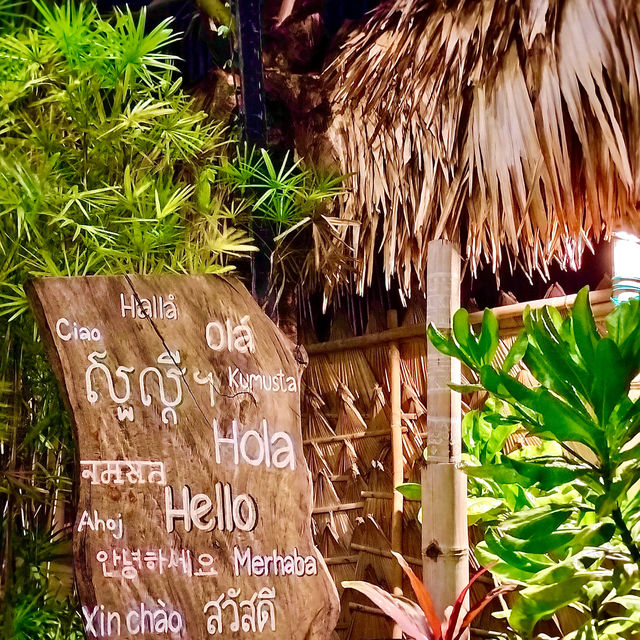 Hallå
Ciao
Olá
សួស្តី។
Kumusta
Hola
नमस्ते
Hello
Ahoj
안녕하세요
Merhaba
Xin chào
สวัสดี